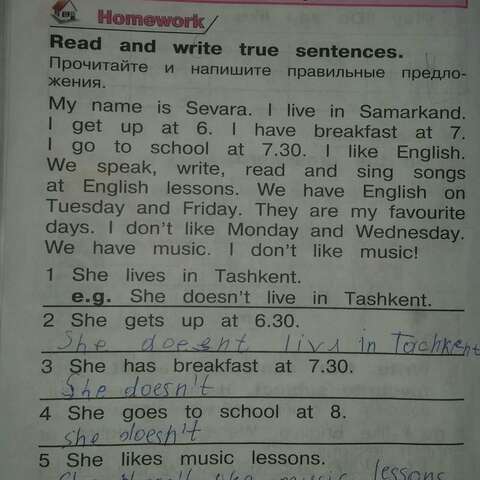 Homework
Read and write true sentences.
Прочитайте и напишите правильные предло-
жения.
My name is Sevara. I live in Samarkand.
I get up at 6. I have breakfast at 7.
I go to school at 7.30. I like English.
We speak, write, read and sing songs
at English lessons. We have English on
Tuesday and Friday. They are my favourite
days. I don't like Monday and Wednesday.
We have music. I don't like music!
1 She lives in Tashkent.
e.g. She doesn't live in Tashkent.
2 She gets up at 6.30.
She doesent livs in Tachkent
3 She has breakfast at 7.30.
She doesn't
4 She goes to school at 8.
She doesn't
5 She likes music lessons.
She music lessons